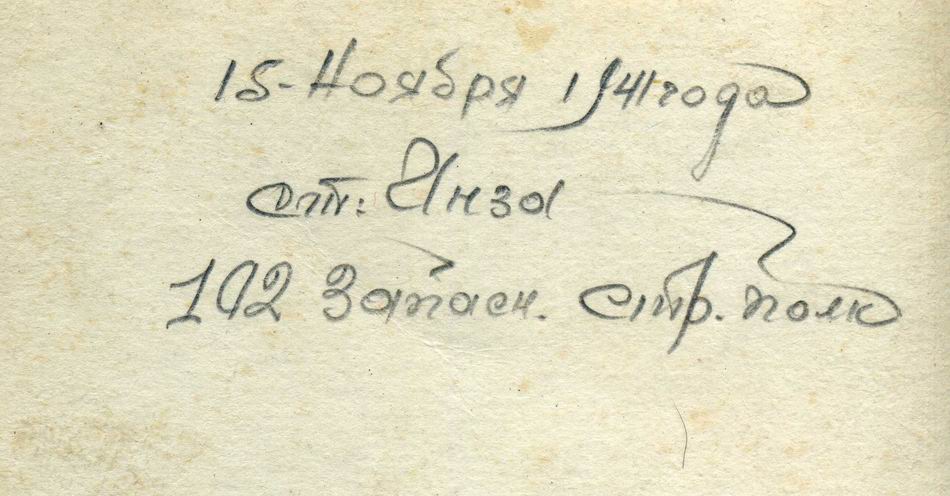 15-Ноября 1941 года
ст: Инза
102 Запасн. стр. полк